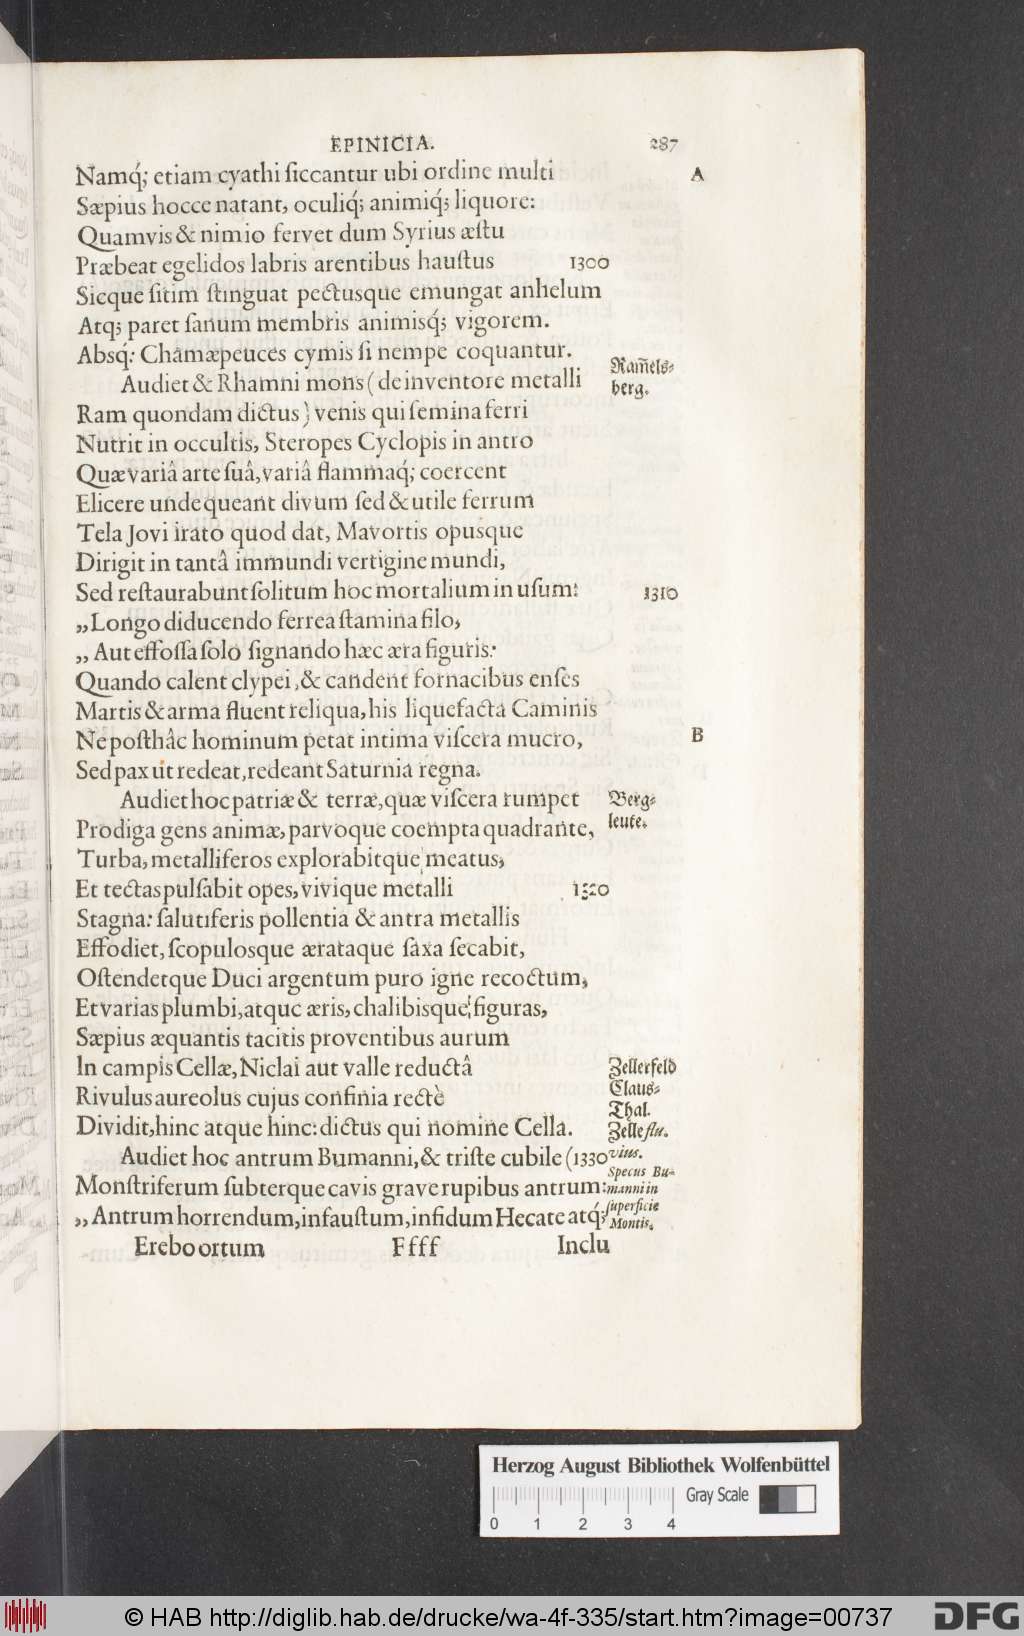 EPINICIA. 287
Namq́; etiam cyathi ſiccantur ubi ordine multi A
Sæpius hocce natant, oculiq́; animiq́; liquore:
Quamvis & nimio fervet dum Syrius æſtu
Præbeat egelidos labris arentibus hauſtus 1300
Sicque ſitim ſtinguat pectusque emungat anhelum
Atq; paret ſanum membris animisq́; vigorem.
Absq́: Chamæpeuces cymis ſi nempe coquantur.
Audiet & Rhamni mons (de inventore metalli Ram̃els-
berg.
Ram quondam dictus) venis qui ſemina ferri
Nutrit in occultis, Steropes Cyclopis in antro
Quæ variâ arte ſuâ, variâ flammaq́; coercent
Elicere unde queant divum ſed & utile ferrum
Tela Jovi irato quod dat, Mavortis opusque
Dirigit in tantâ immundi vertigine mundi,
Sed reſtaurabunt ſolitum hoc mortalium in uſum: 1310
„Longo diducendo ferrea ſtamina filo,
„Aut effoſſa ſolo ſignando hæc æra figuris:
Quando calent clypei, & candent fornacibus enſes
Martis & arma fluent reliqua, his liquefacta Caminis
Ne poſthâc hominum petat intima viſcera mucro, B
Sed pax ut redeat, redeant Saturnia regna.
Audiet hoc patriæ & terræ, quæ viſcera rumpet Berg-
leute.
Prodiga gens animæ, parvoque coempta quadrante,
Turba, metalliferos explorabitque meatus,
Et tectas pulſabit opes, vivique metalli 1320
Stagna: ſalutiferis pollentia & antra metallis
Effodiet, ſcopulosque ærataque ſaxa ſecabit,
Oſtendetque Duci argentum puro igne recoctum,
Et varias plumbi, atque æris, chalibisque figuras,
Sæpius æquantis tacitis proventibus aurum
In campis Cellæ, Niclai aut valle reductâ Zellerfeld
Rivulus aureolus cujus confinia rectè Claus-
Thal.
Dividit, hinc atque hinc: dictus qui nomine Cella. Zelle flu.
vius.
Audiet hoc antrum Bumanni, & triſte cubile (1330 Specus Bu-
Monſtriferum ſubterque cavis grave rupibus antrum: manni in
„Antrum horrendum, infauſtum, infidum Hecate atq́; ſuperficie
Montis.
Erebo ortum Ffff Inclu
Herzog August Bibliothek Wolfenbüttel
Gray Scale
0 1 2 3 4
© HAB http://diglib.hab.de/drucke/wa-4f-335/start.htm?image=00737 DFG